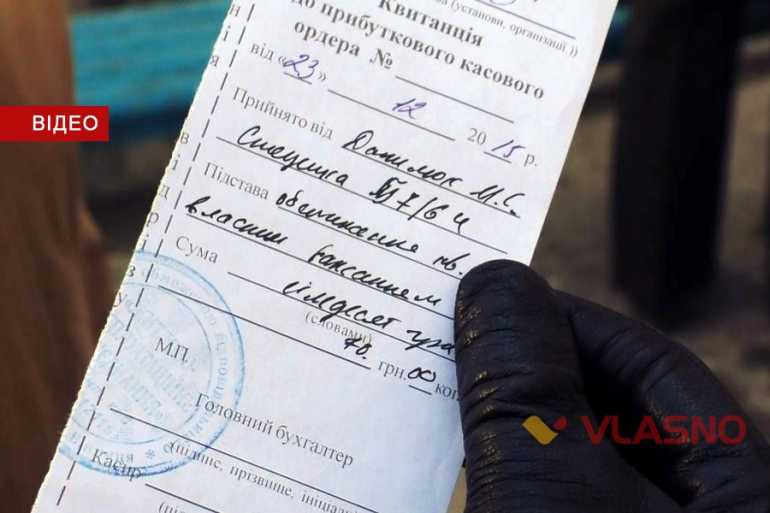 ва (установи, організації))
Квитанція
до прибуткового касового
ордера №
від «23» 12 2015 р.
Прийнято від Данилюк М.С.
Стеценка 7/6
Підстава обстеження кв.
власним бажанням
Сума сімдесят грн
(словами)
70 грн. 00 коп
М.П.
Головний бухгалтер
(підпис, прізвище, ініціали
Касир
ВІДЕО
VLASNO